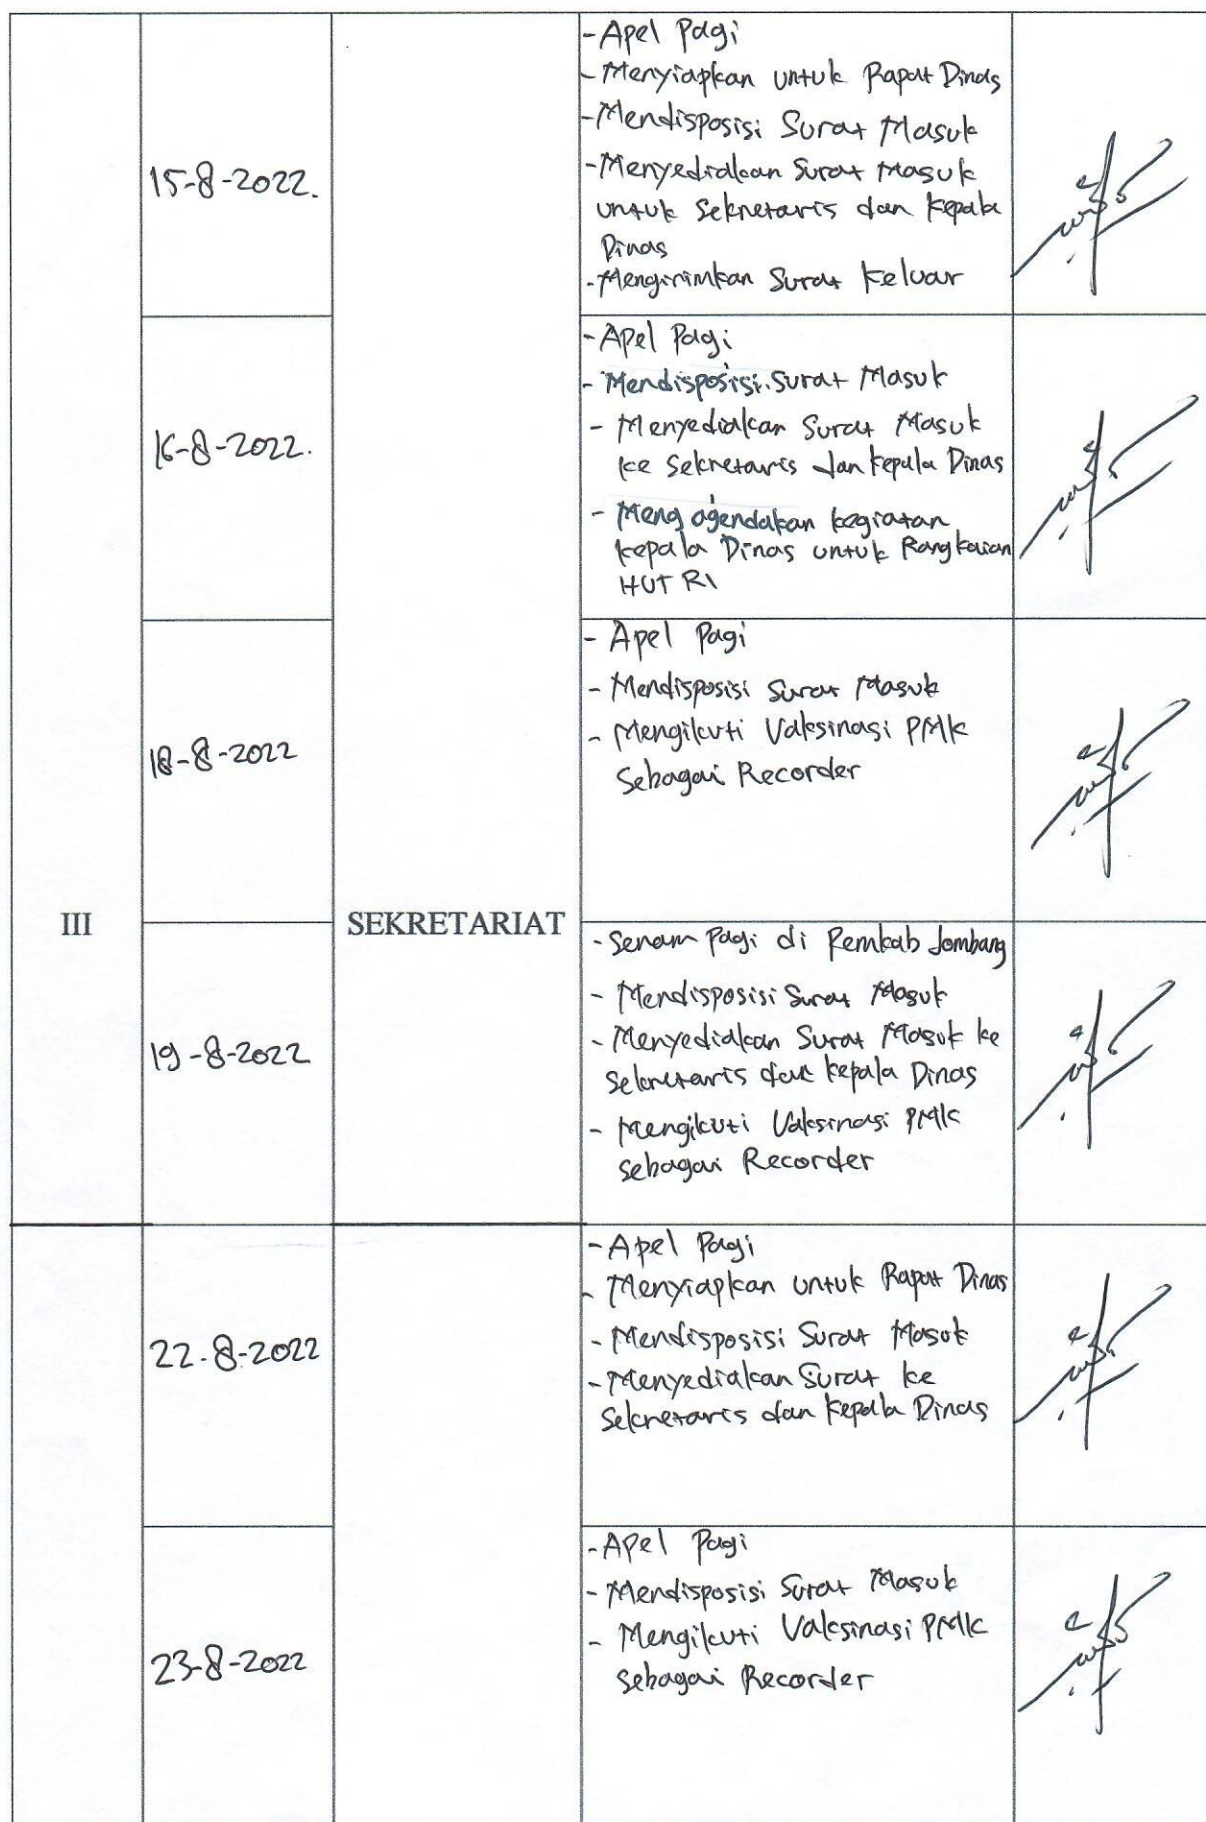 15-8-2022.
- Apel Pagi
- Menyiapkan untuk Rapat Dinas
- Mendisposisi Surat Masuk
- Menyediakan Surat Masuk
untuk Sekretaris dan Kepala
Dinas
- Mengirimkan Surat Keluar
16-8-2022.
- Apel Pagi
- Mendisposisi Surat Masuk
- Menyediakan Surat Masuk
ke Sekretaris dan Kepala Dinas
- Mengagendakan kegiatan
Kepala Dinas untuk Rangkaian
HUT RI
18-8-2022
- Apel Pagi
- Mendisposisi Surat Masuk
- Mengikuti Vaksinasi PMK
Sebagai Recorder
III
SEKRETARIAT
19-8-2022
- Senam Pagi di Pemkab Jombang
- Mendisposisi Surat Masuk
- Menyediakan Surat Masuk ke
Sekretaris dan Kepala Dinas
- Mengikuti Vaksinasi PMK
Sebagai Recorder
22-8-2022
- Apel Pagi
- Menyiapkan untuk Rapat Dinas
- Mendisposisi Surat Masuk
- Menyediakan Surat ke
Sekretaris dan Kepala Dinas
23-8-2022
- Apel Pagi
- Mendisposisi Surat Masuk
- Mengikuti Vaksinasi PMK
Sebagai Recorder